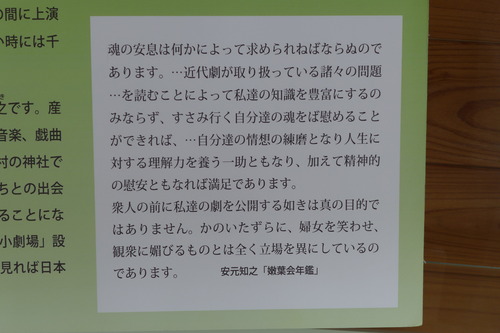 の間に上演
い時には千
之です。産
音楽、戯曲
村の神社で
ちとの出会
ることにな
小劇場」設
見れば日本
魂の安息は何かによって求められねばならぬので
あります。…近代劇が取り扱っている諸々の問題
…を読むことによって私達の知識を豊富にするの
みならず、すさみ行く自分達の魂をば慰めること
ができれば、…自分達の情想の練磨となり人生に
対する理解力を養う一助ともなり、加えて精神的
の慰安ともなれば満足であります。
衆人の前に私達の劇を公開する如きは真の目的で
はありません。かのいたずらに、婦女を笑わせ、
観衆に媚びるものとは全く立場を異にしているの
であります。
安元知之「嫩葉会年鑑」